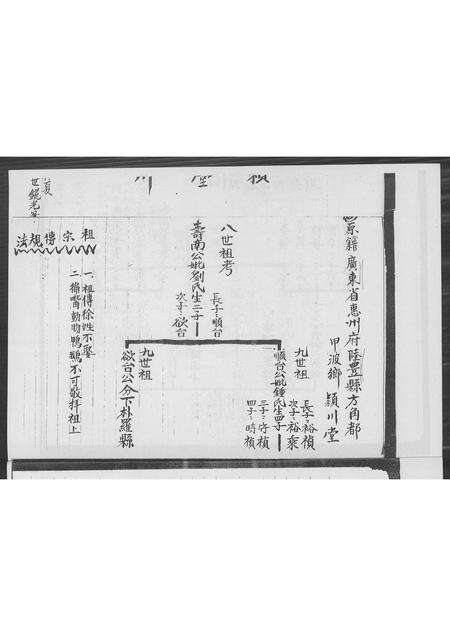 原籍廣東省惠州府陸豐縣方角都
甲波鄉 潁川堂
八世祖考
壽南公妣劉氏生二子
長子順台
次子欲台
九世祖
順台公妣鍾氏生四子
長子裕楨
次子裕秉
三子守楨
四子時楨
九世祖
欲台公分下朴羅縣
祖宗傳規法
一、祖傳徐姓不娶
二、扁嘴動物鴨鵝不可敬拜祖上